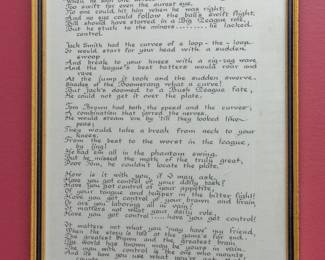 When he
Too swift for even the surest eye.
No one could hit him when he was right;
And no eye could follow the ball's swift flight.
Bill should have starred in a Big League role,
But he stuck to the minors ........ he lacked
control.
Jack Smith had the curves of a loop-the-loop.
Or would start for your head with a sudden
swoop
And break to your knees with a zig-zag wave,
And the league's best batters would roar and
rave
At the jump it took and the sudden swerve,
Shades of the Boomerang what a curve!
But Jack's doomed to a Bush League fate,
He could not get it over the plate.
Tom Brown had both the speed and the curves;
A combination that jarred the nerves.
He would steam 'em by 'till they looked like
peas;
They would take a break from neck to your
knees.
From the best to the worst in the league,
by ling!
He had em all in the phantom swing.
But he missed the mark of the truly great,
Poor Tom, he couldn't locate the plate.
How is it with you, if I may ask,
Have you got control of your daily task?
Have you got control of your appetite,
of your tongue and temper in the bitter fight?
Have you got control of your brawn and brain
Or are you laboring all in vain?
It matters not what your daily role,
Have you got control ..... have you got control?
It matters not what you "may have" my friend,
When the story is told at the game's far end.
The greatest brawn and the greatest brain
The world has known may be yours in vain.
The man with control is the one who mounts,
And its how you use what you've got that